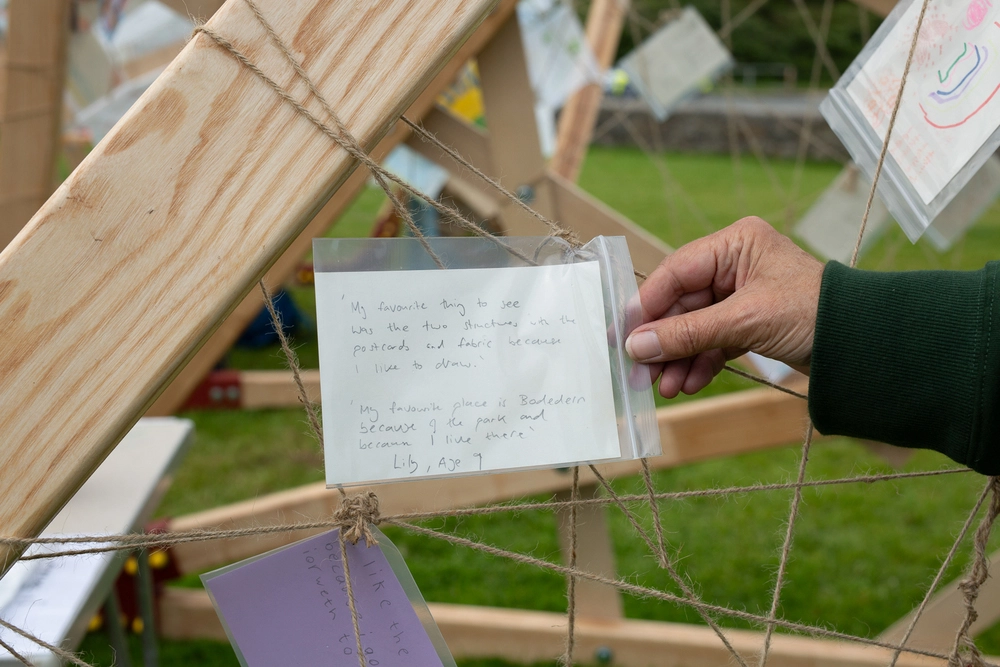 'My favourite thing to see
was the two structures with the
postcards and fabric because
I like to draw.'
'My favourite place is Bodedern
because of the park and
because I live there'
Lily, Age 9
like the
because
iorweth to